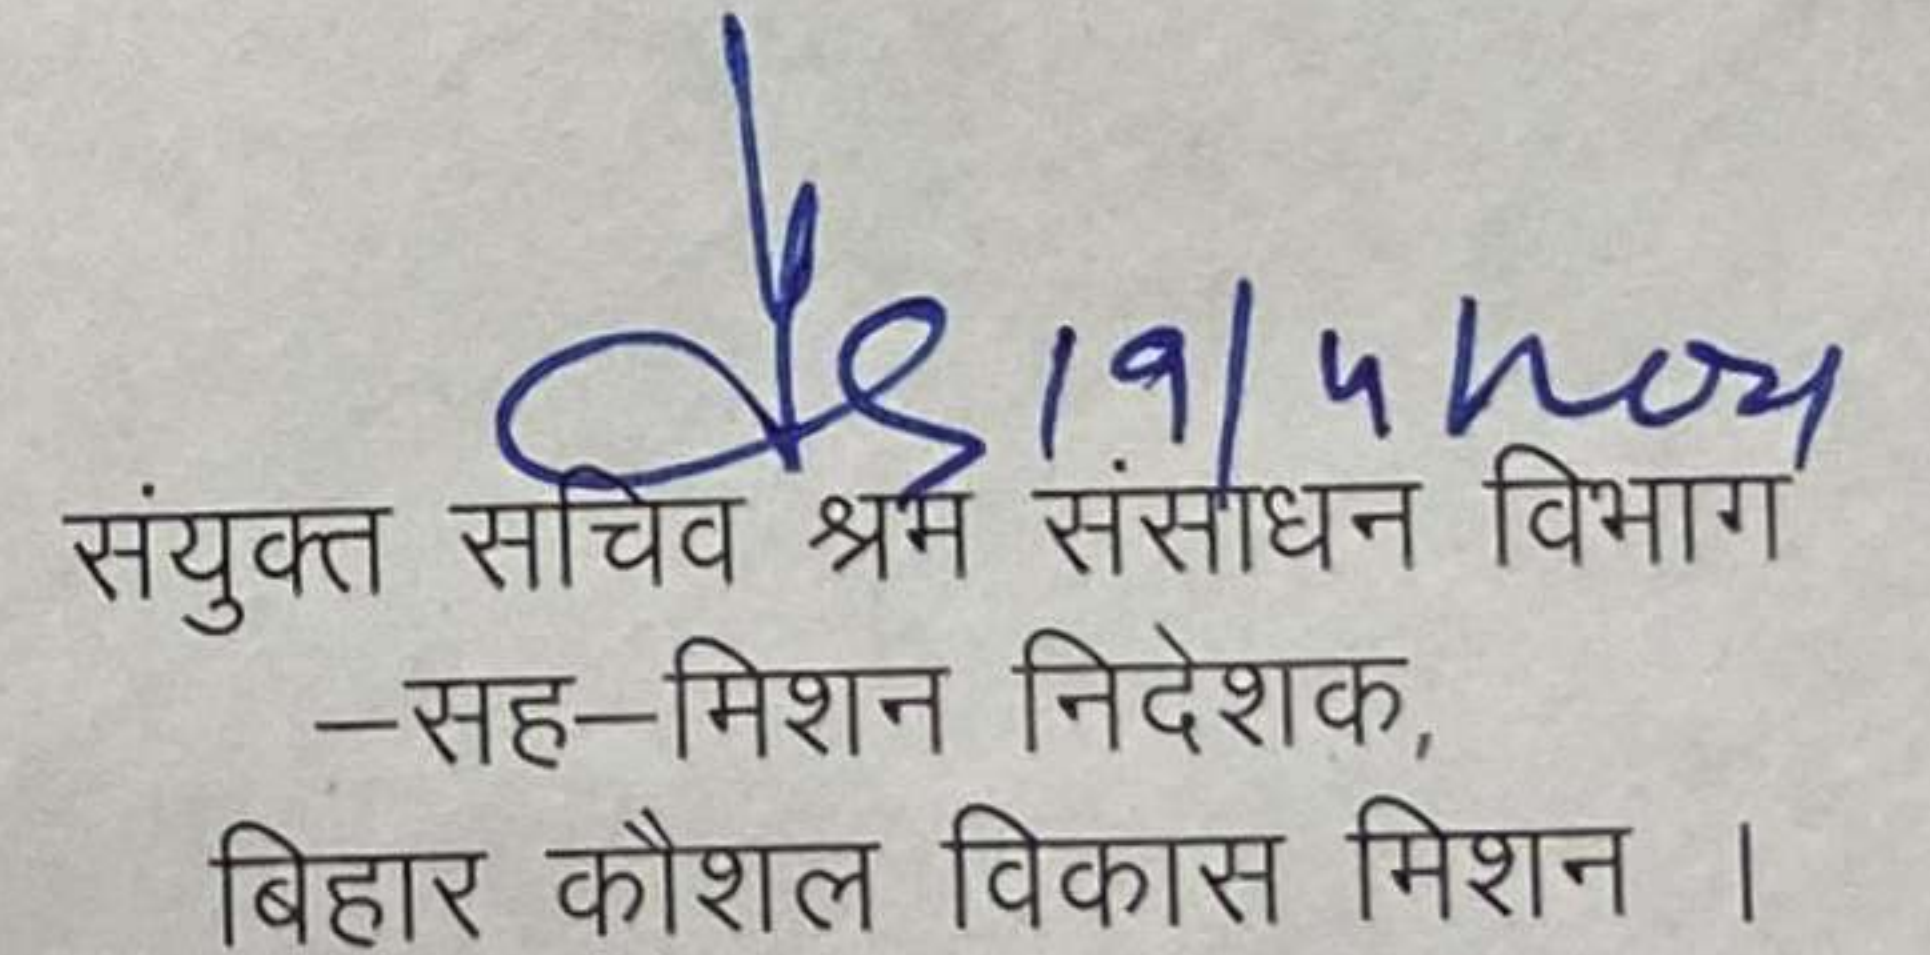 19/4/2024
संयुक्त सचिव श्रम संसाधन विभाग
–सह–मिशन निदेशक,
बिहार कौशल विकास मिशन ।